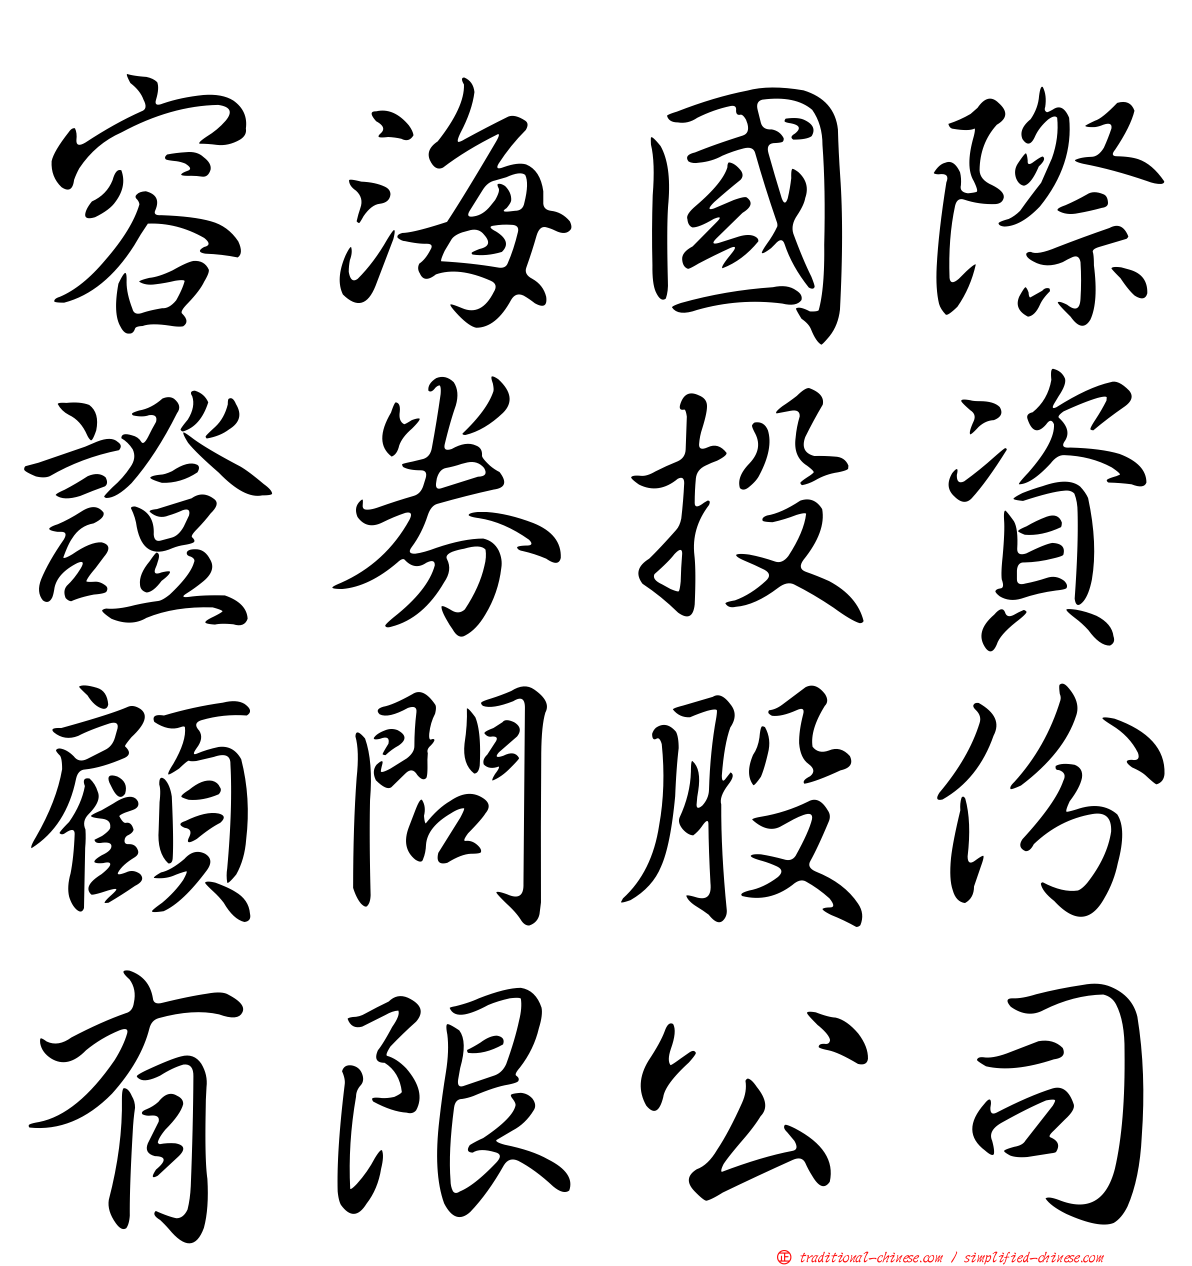 容海國際
證券投資
顧問股份
有限公司
㊣ traditional-chinese.com / simplified-chinese.com